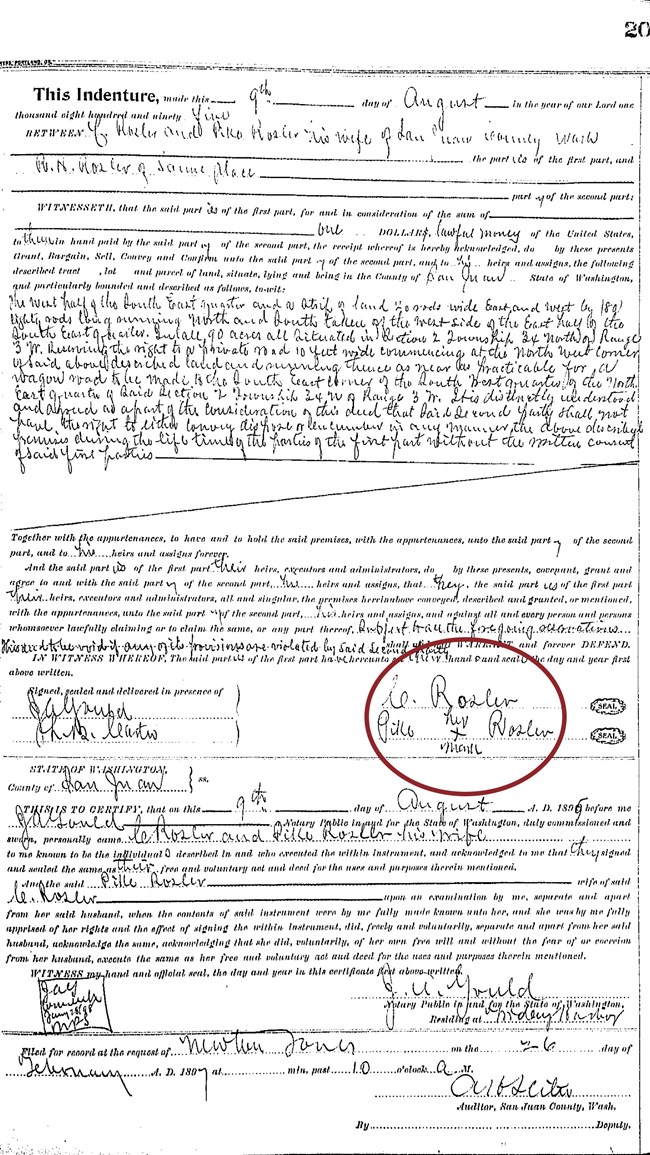 20
This Indenture, made this 9th day of August in the year of our Lord one
thousand eight hundred and ninety five
BETWEEN C Rosler and Pike Rosler his wife of San Juan County Wash
the parties of the first part, and
R. H. Rosler of Same place
party of the second part:
WITNESSETH, that the said parties of the first part, for and in consideration of the sum of
one DOLLARS, lawful money of the United States,
to them in hand paid by the said party of the second part, the receipt whereof is hereby acknowledged, do by these presents
Grant, Bargain, Sell, Convey and Confirm unto the said party of the second part, and to his heirs and assigns, the following
described tract , lot and parcel of land, situate, lying and being in the County of San Juan State of Washington,
and particularly bounded and described as follows, to-wit:
The West half of the South East quarter and a Strip of land 20 rods wide East and west by (80)
Eighty rods long running North and South taken of the West Side of the East half of the
South East quarter. In all 90 acres all Situated in Section 2 Township 34 North of Range
3 W. Reserving the right to a private road 10 feet wide commencing at the North West corner
of said above described land and running thence as near as practicable for a
wagon road to be made to the South East corner of the South West quarter of the North
East quarter of Said Section 2 Township 34 N of Range 3 W. It is distinctly understood
and agreed as a part of the consideration of this deed that Said Second party shall not
have the right to either convey dispose or encumber in any manner the above described
premises during the life time of the parties of the first part without the written consent
of said first parties
Together with the appurtenances, to have and to hold the said premises, with the appurtenances, unto the said party of the second
part, and to his heirs and assigns forever.
And the said parties of the first part their heirs, executors and administrators, do by these presents, covenant, grant and
agree to and with the said party of the second part, his heirs and assigns, that they, the said parties of the first part
their heirs, executors and administrators, all and singular, the premises hereinabove conveyed, described and granted, or mentioned,
with the appurtenances, unto the said party of the second part, his heirs and assigns, and against all and every person and persons
whomsoever lawfully claiming or to claim the same, or any part thereof, Subject to all the foregoing reservations
This deed to be void if any of its provisions are violated by Said Second party shall and will WARRANT and forever DEFEND.
IN WITNESS WHEREOF, The said parties of the first part have hereunto set their hand and seal the day and year first
above written.
Signed, sealed and delivered in presence of
J A Gould
C. Rosler SEAL
Pike her x mark Rosler SEAL
STATE OF WASHINGTON, ss.
County of San Juan
THIS IS TO CERTIFY, that on this 9th day of August A. D. 1896 before me
J A Gould a Notary Public in and for the State of Washington, duly commissioned and
sworn, personally came C Rosler and Pike Rosler his wife
to me known to be the individuals described in and who executed the within instrument, and acknowledged to me that they signed
and sealed the same as their free and voluntary act and deed for the uses and purposes therein mentioned.
And the said Pike Rosler wife of said
C. Rosler upon an examination by me, separate and apart
from her said husband, when the contents of said instrument were by me fully made known unto her, and she was by me fully
apprised of her rights and the effect of signing the within instrument, did, freely and voluntarily, separate and apart from her said
husband, acknowledge the same, acknowledging that she did, voluntarily, of her own free will and without the fear of or coercion
from her husband, execute the same as her free and voluntary act and deed for the uses and purposes therein mentioned.
WITNESS my hand and official seal, the day and year in this certificate first above written.
J. A. Gould
Notary Public in and for the State of Washington,
Residing at Friday Harbor
Filed for record at the request of Newton Jones on the 26 day of
February A. D. 1897 at min. past 10 o'clock A M.
Auditor, San Juan County, Wash.
By Deputy.